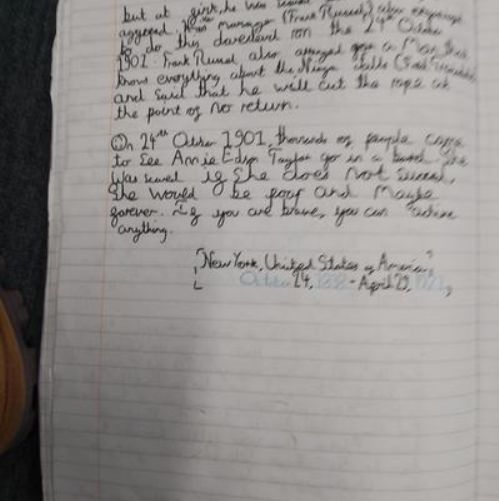 but at first, he was
agreed. manager (Frank Russel) also
to do this daredevil on the 24th October
1901. Frank Russel also arranged for a Man that
know everything about the Niagra falls (Fred
and said that he will cut the rope at
the point of No return.
On 24th October 1901, thousands of people came
to see Annie Edson Taylor go in a barrel. She
was scared if She does Not
She Would be poor and Maybe
forever. If you are brave, you can
anything.
New York, United States of America,
October 24, - April 29,